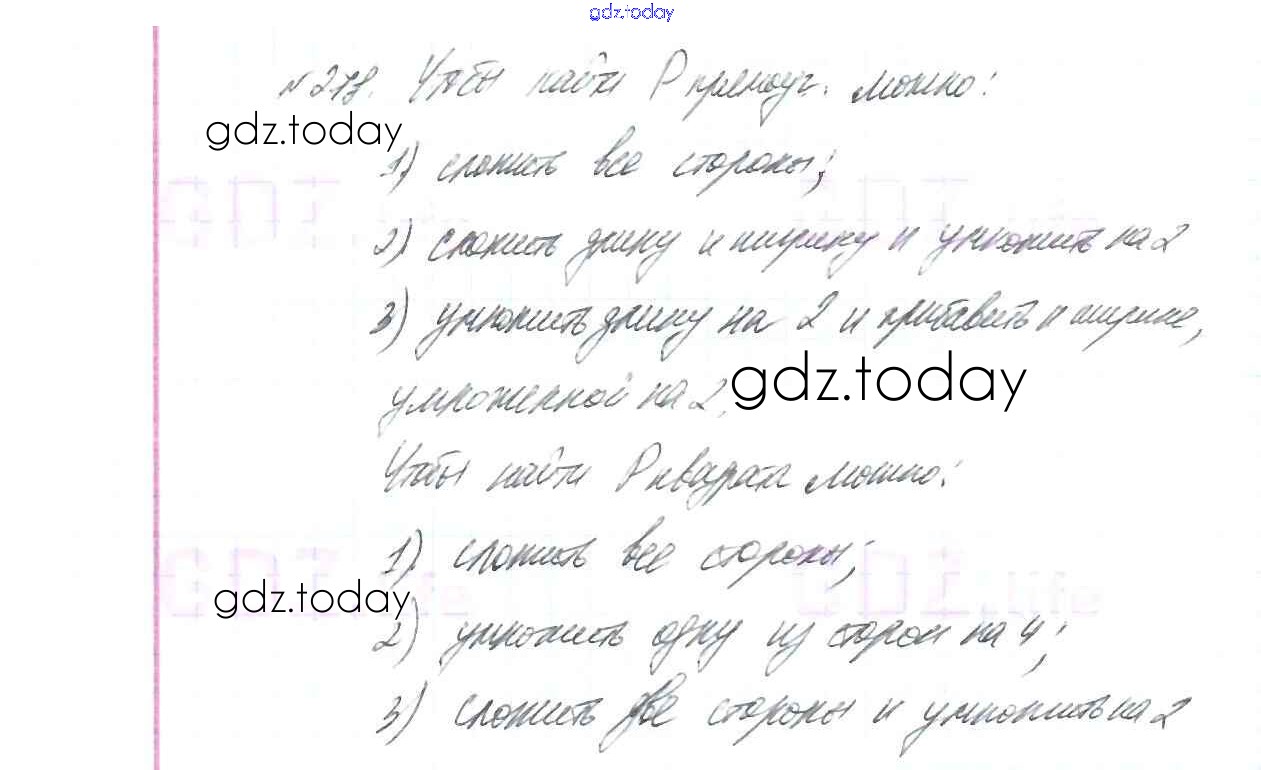 gdz.today
№278. Чтобы найти P прямоуг. можно:
gdz.today
1) сложить все стороны;
2) сложить длину и ширину и умножить на 2
3) умножить длину на 2 и прибавить к ширине,
умноженной на 2.
gdz.today
Чтобы найти P квадрата можно:
1) сложить все стороны;
gdz.today
2) умножить одну из сторон на 4;
3) сложить две стороны и умножить на 2